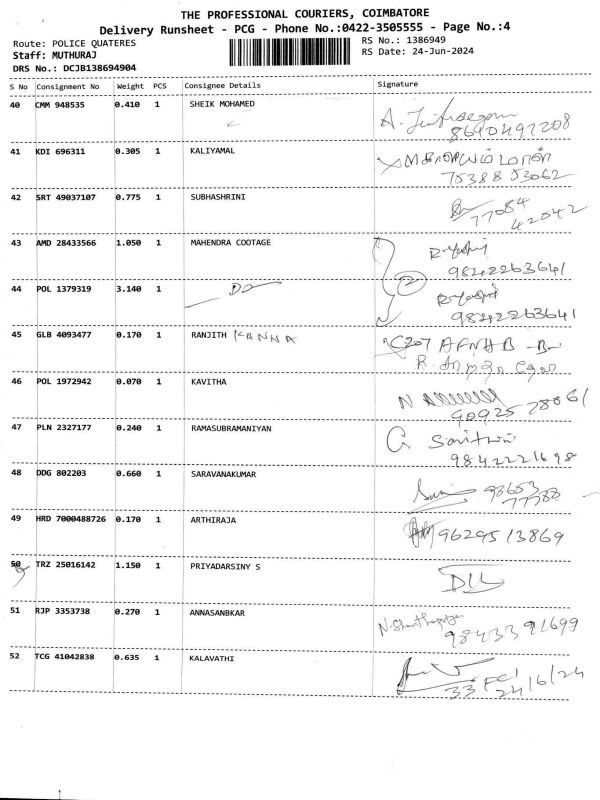 THE PROFESSIONAL COURIERS, COIMBATORE
Delivery Runsheet - PCG - Phone No.:0422-3505555 - Page No.:4
Route: POLICE QUATERES
RS No.: 1386949
Staff: MUTHURAJ
RS Date: 24-Jun-2024
DRS No.: DCJB138694904
S No Consignment No Weight PCS Consignee Details Signature
40 CMM 948535 0.410 1 SHEIK MOHAMED
8690497208
41 KDI 696311 0.305 1 KALIYAMAL
75388 53062
42 SRT 49037107 0.775 1 SUBHASHRINI
77084
42042
43 AMD 28433566 1.050 1 MAHENDRA COOTAGE
9842263641
44 POL 1379319 3.140 1
9842263641
45 GLB 4093477 0.170 1 RANJITH KANNA C207 AFNHB
46 POL 1972942 0.070 1 KAVITHA
90925 78061
47 PLN 2327177 0.240 1 RAMASUBRAMANIYAN
9842221698
48 DDG 802203 0.660 1 SARAVANAKUMAR
98653
77788
49 HRD 7000488726 0.170 1 ARTHIRAJA 9629513869
50 TRZ 25016142 1.150 1 PRIYADARSINY S
51 RJP 3353738 0.270 1 ANNASANBKAR
9843391699
52 TCG 41042838 0.635 1 KALAVATHI
24/6/24